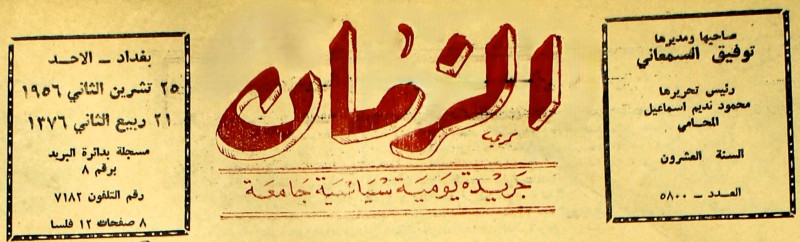 صاحبها ومديرها
توفيق السمعاني
رئيس تحريرها
محمود نديم اسماعيل
المحامي
السنة العشرون
العدد - ٥٨٠٠
الزمان
جريدة يومية سياسية جامعة
بغداد - الاحد
٢٥ تشرين الثاني ١٩٥٦
٢١ ربيع الثاني ١٣٧٦
مسجلة بدائرة البريد
برقم ٨
رقم التلفون ٧١٨٢
٨ صفحات ١٢ فلسا